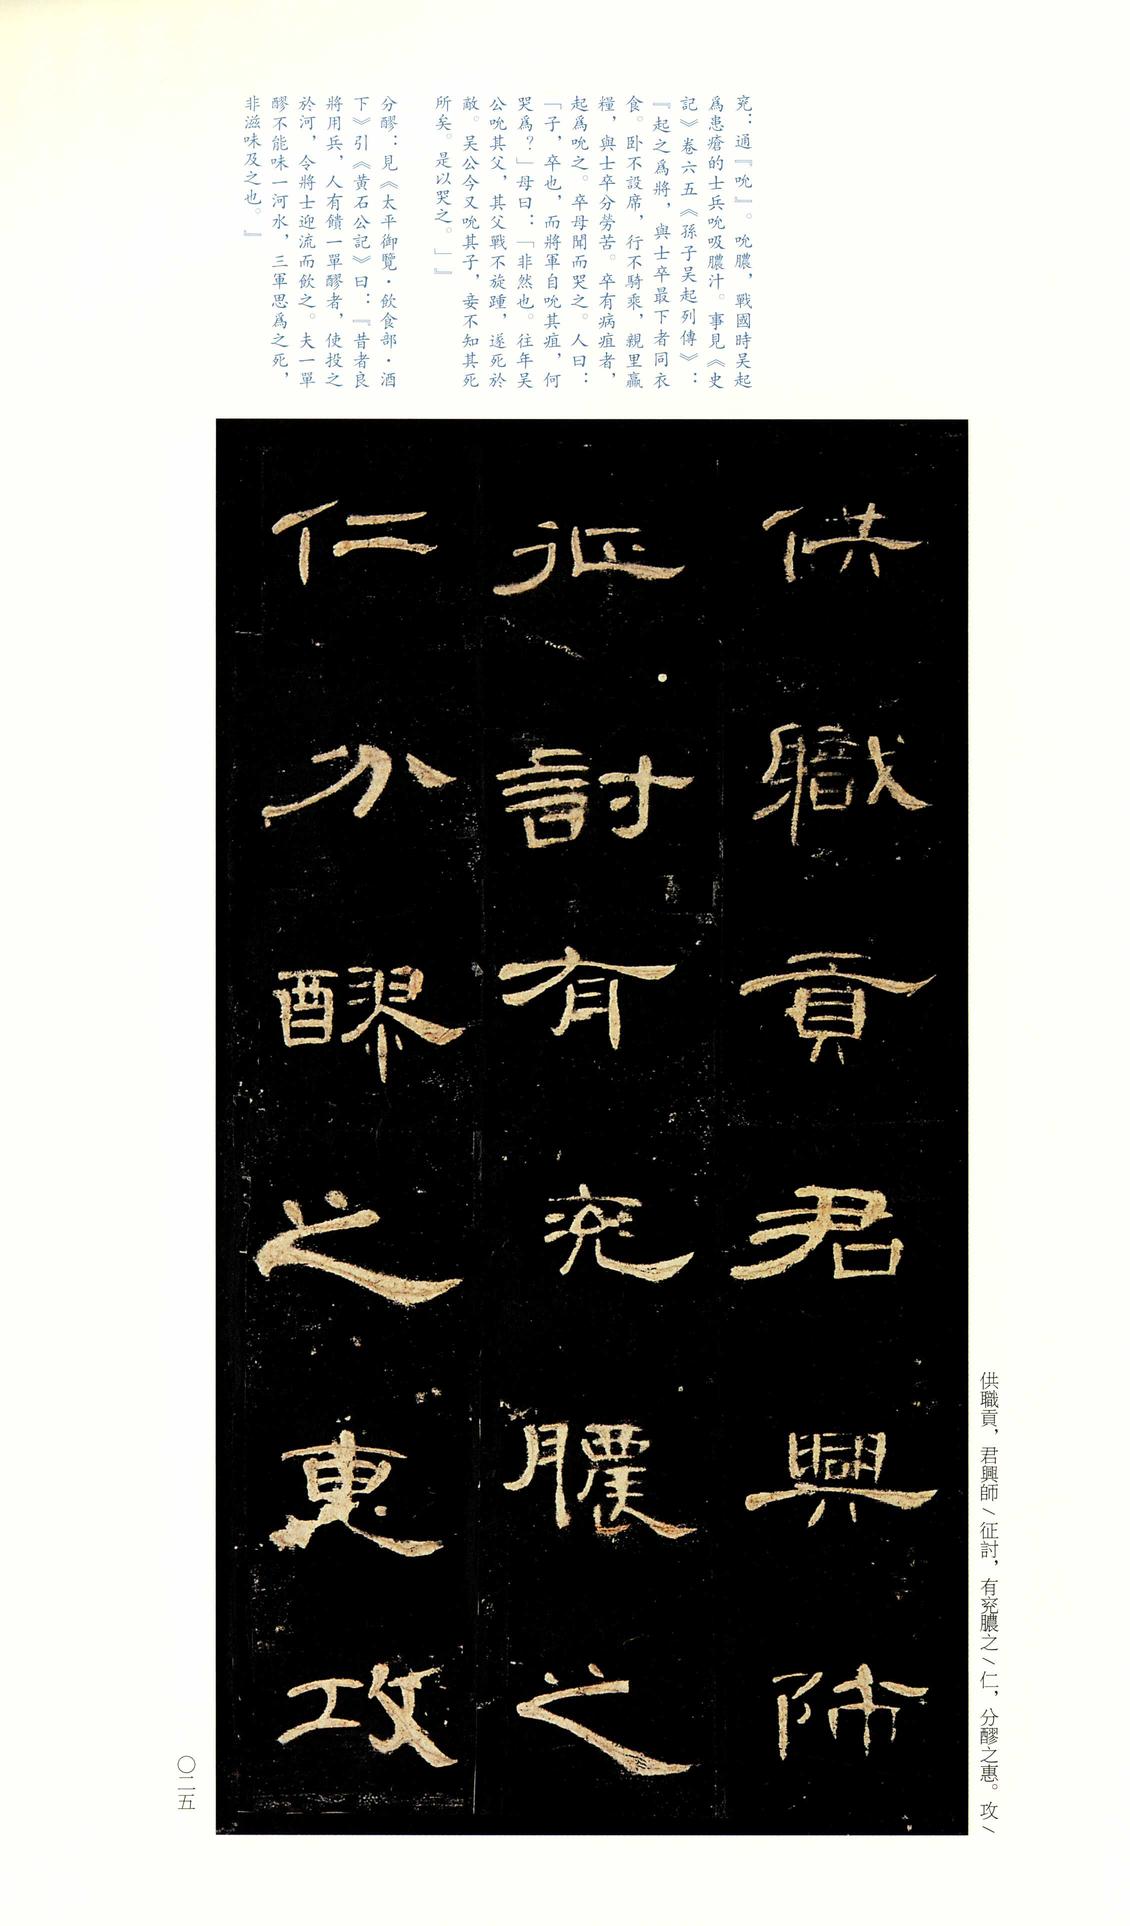 兖：通『吮』。吮膿，戰國時吴起
爲患瘡的士兵吮吸膿汁。事見《史
記》卷六五《孫子吴起列傳》：
『起之爲將，與士卒最下者同衣
食。卧不設席，行不騎乘，親里贏
糧，與士卒分勞苦。卒有病疽者，
起爲吮之。卒母聞而哭之。人曰：
「子，卒也，而將軍自吮其疽，何
哭爲？」母曰：「非然也。往年吴
公吮其父，其父戰不旋踵，遂死於
敵。吴公今又吮其子，妾不知其死
所矣。是以哭之。」』
分醪：見《太平御覽·飲食部·酒
下》引《黄石公記》曰：『昔者良
將用兵，人有饋一單醪者，使投之
於河，令將士迎流而飲之。夫一單
醪不能味一河水，三軍思爲之死，
非滋味及之也。』
供職貢君興師
征討有兖膿之
仁分醪之惠攻
供職貢，君興師\征討，有兖膿之\仁，分醪之惠。攻\
〇二五